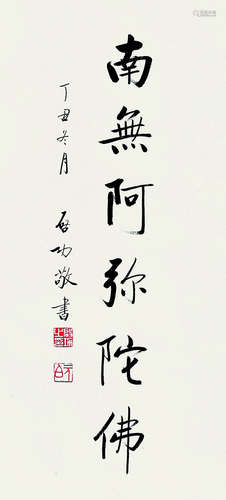 南無阿弥陀佛
丁丑冬月
启功敬書